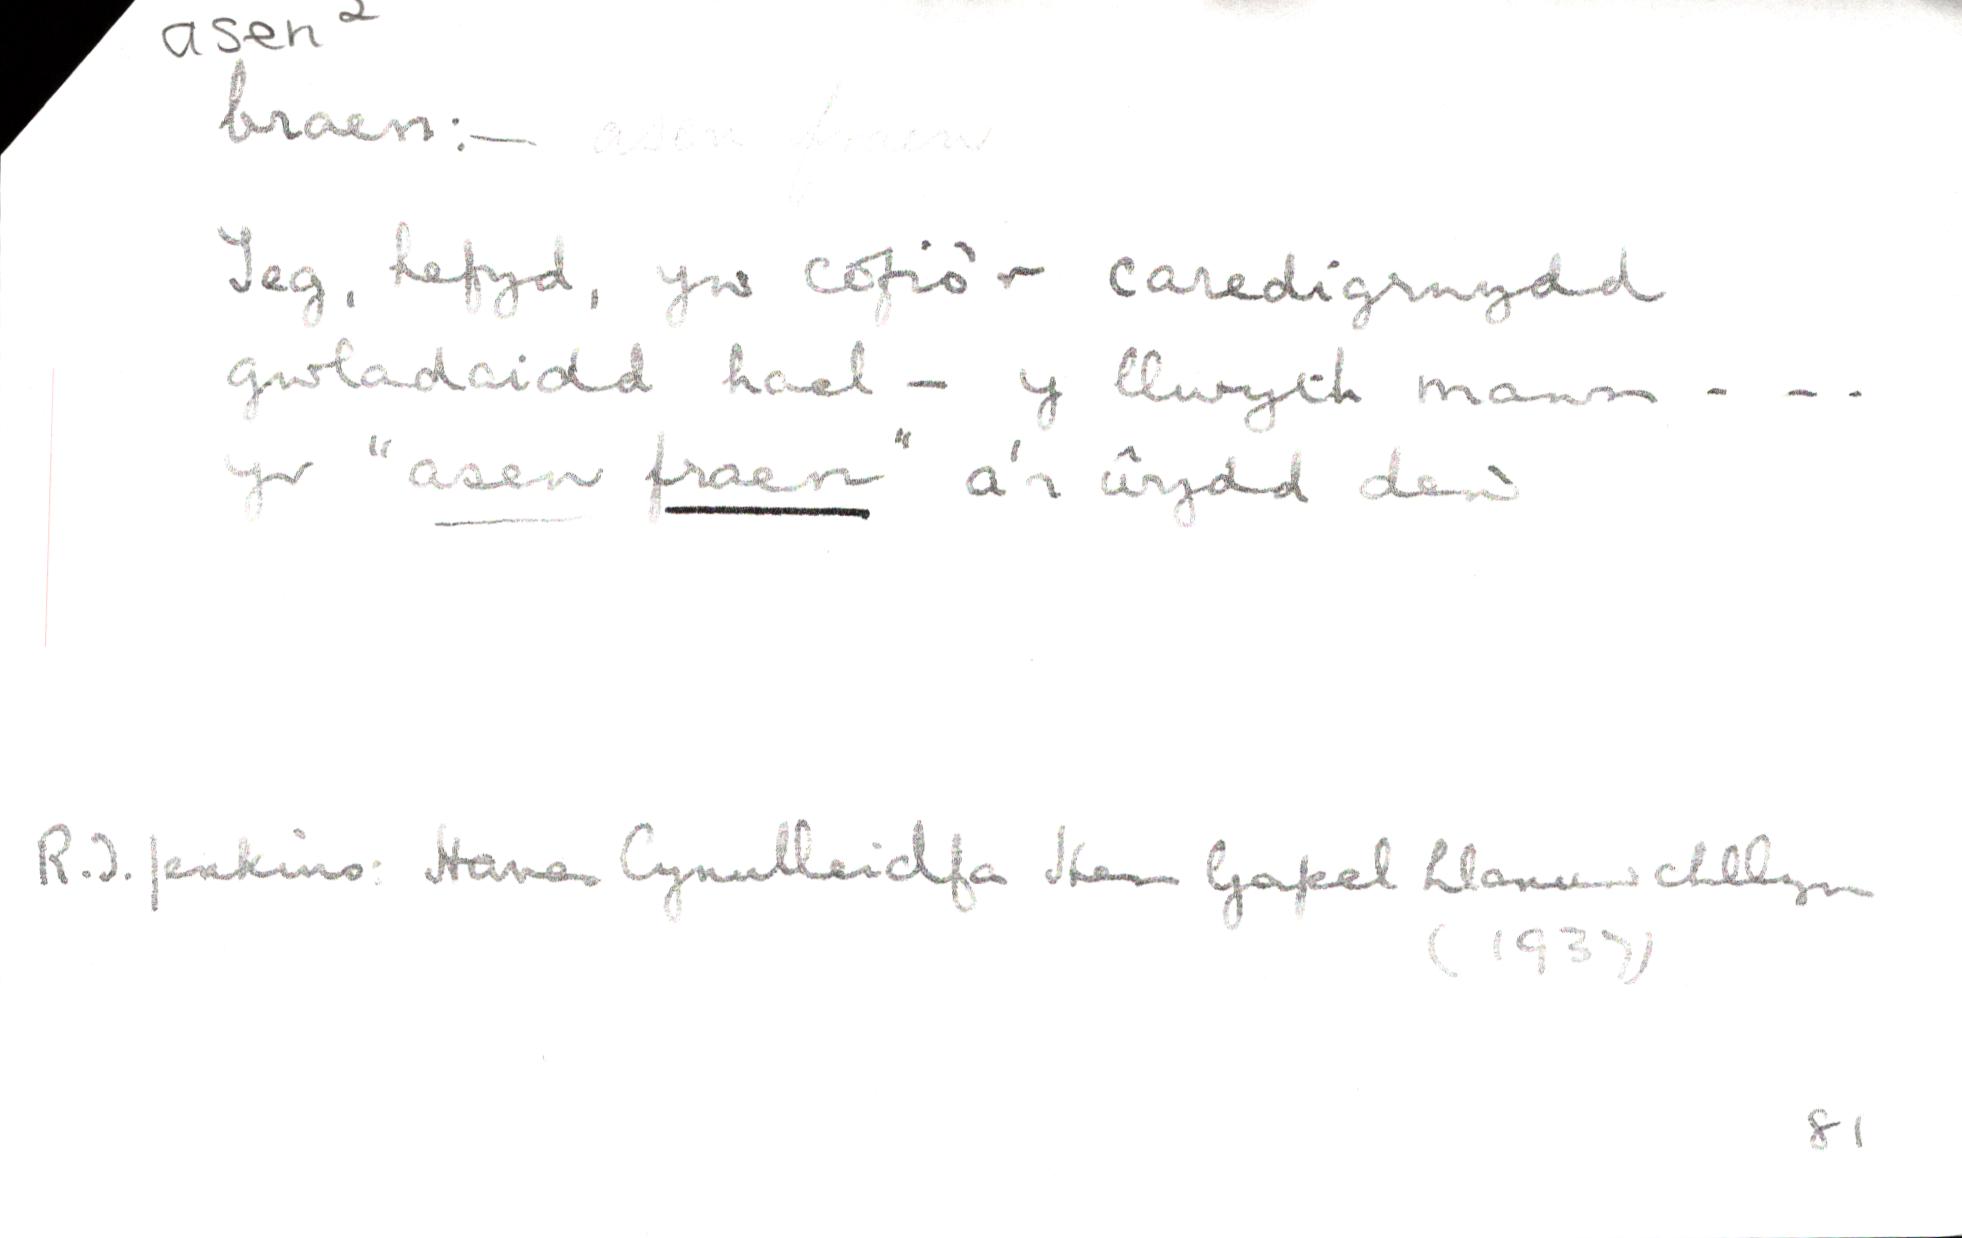 asen²
braen:— asen fraen
Teg, hefyd, yw cofio'r caredigrwydd
gwladaidd hael – y llwyth mawn - - -
yr "asen fraen" a'r ŵydd dew
R.T. Jenkins: Hanes Cynulleidfa Hen Gapel Llanuwchllyn
(1937)
81